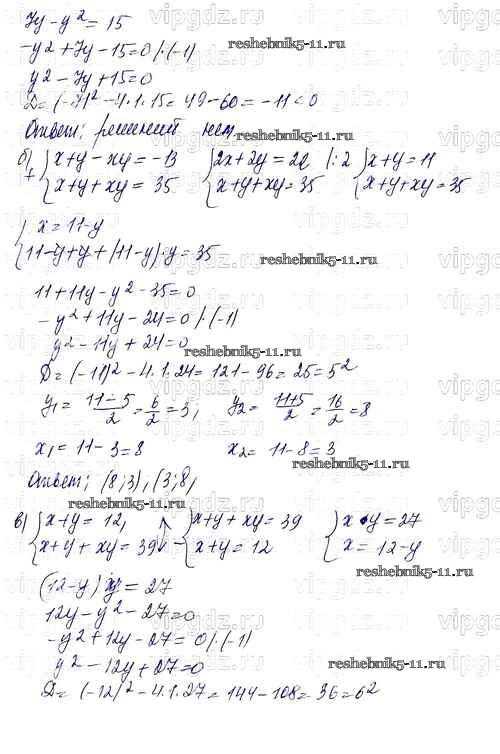 7y - y² = 15
-y² + 7y - 15 = 0 | · (-1)
reshebnik5-11.ru
y² - 7y + 15 = 0
D = (-7)² - 4·1·15 = 49 - 60 = -11 < 0
Ответ: решений нет.
reshebnik5-11.ru
б) + { x+y-xy = -13 { 2x+2y = 22 |:2 { x+y = 11
x+y+xy = 35 x+y+xy = 35 x+y+xy = 35
{ x = 11-y
11-y+y+(11-y)·y = 35
reshebnik5-11.ru
11+11y-y²-35=0
-y²+11y-24=0 | · (-1)
y²-11y+24=0
reshebnik5-11.ru
D = (-11)² - 4·1·24 = 121 - 96 = 25 = 5²
y₁ = (11-5)/2 = 6/2 = 3; y₂ = (11+5)/2 = 16/2 = 8
x₁ = 11-3 = 8 x₂ = 11-8 = 3
reshebnik5-11.ru
Ответ: (8;3), (3;8)
reshebnik5-11.ru
в) { x+y = 12, { x+y+xy = 39 { x·y = 27
x+y+xy = 39 - x+y = 12 x = 12-y
reshebnik5-11.ru
(12-y)y = 27
12y-y²-27=0
-y²+12y-27=0 | · (-1)
y²-12y+27=0
reshebnik5-11.ru
D = (-12)² - 4·1·27 = 144 - 108 = 36 = 6²